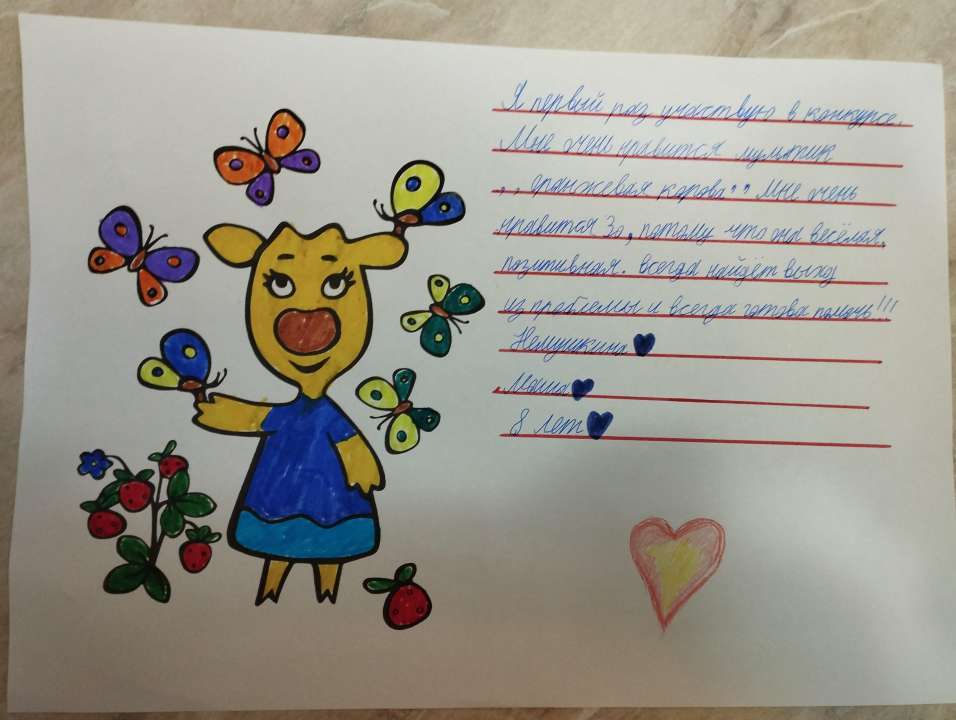 Я первый раз участвую в конкурсе.
Мне очень нравится мультик
,, Оранжевая корова" Мне очень
нравится Зо, потому что она весёлая,
позитивная. Всегда найдёт выход
из проблемы и всегда готова помочь!!!
Немушкина
Маша
8 лет